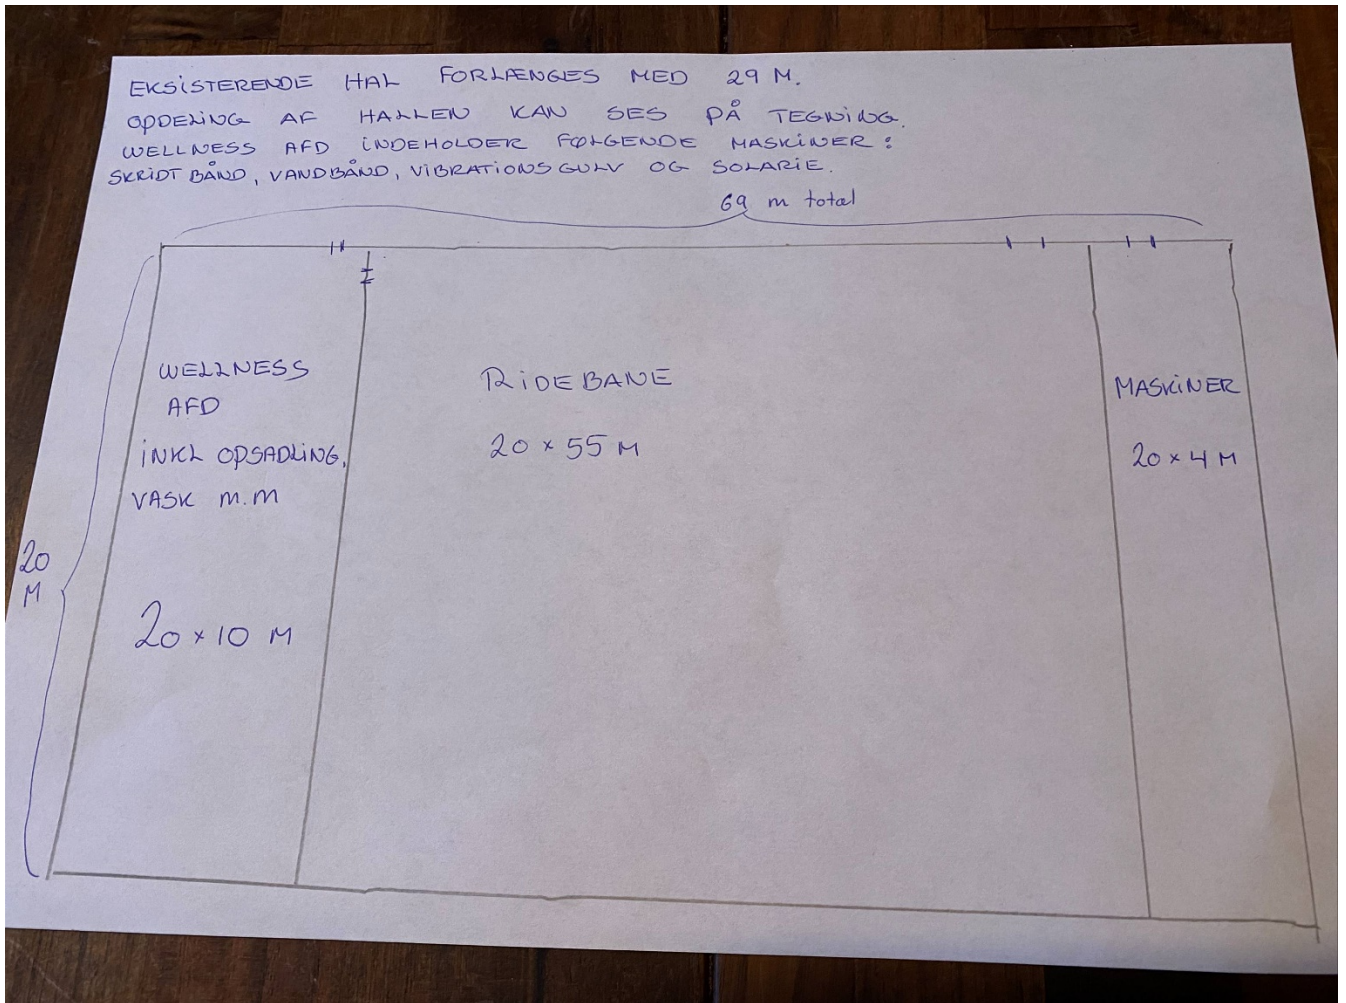 EKSISTERENDE HAL FORLÆNGES MED 29 M.
OPDELING AF HALLEN KAN SES PÅ TEGNING.
WELLNESS AFD INDEHOLDER FØLGENDE MASKINER:
SKRIDTBÅND, VANDBÅND, VIBRATIONSGULV OG SOLARIE.
69 m total
WELLNESS
AFD
INKL OPSADLING,
VASK m.m
20 x 10 M
RIDEBANE
20 x 55 M
MASKINER
20 x 4 M
20
M